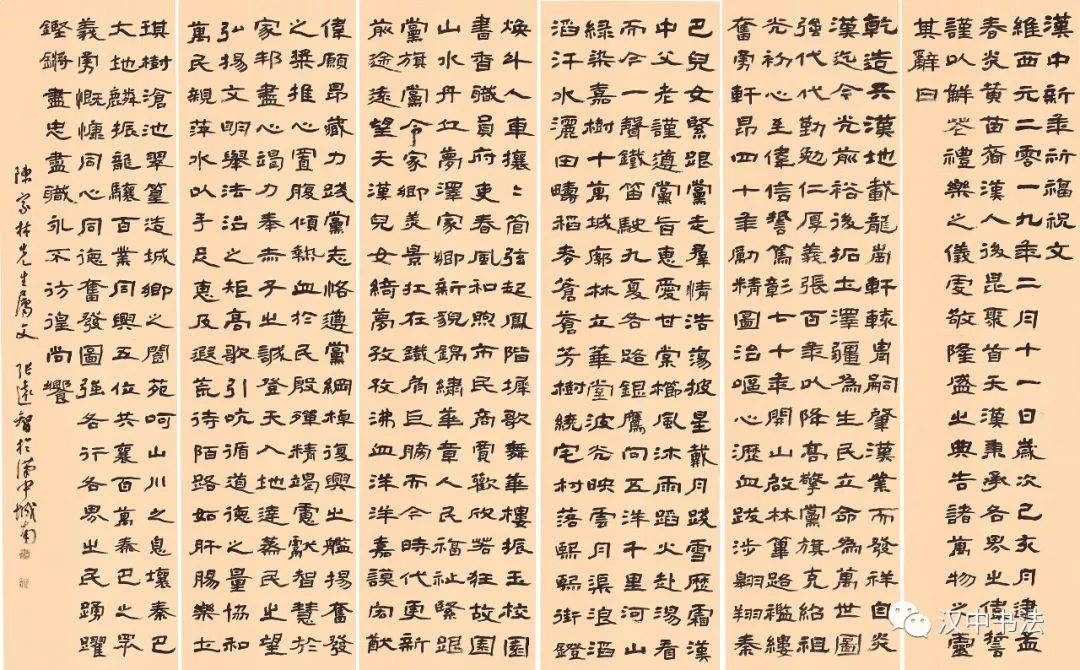 漢中新年祈福祝文
維西元二零一九年二月十一日歲次己亥月建孟
春炎黃苗裔漢人後昆聚首天漢秉承各界之偉誓
謹以鮮花禮樂之儀虔敬隆盛之典告諸萬物之靈
其辭曰
乾造兵漢地載龍崗軒轅胄嗣肇漢業而發祥自炎
漢迄今光前裕後拓土澤疆為生民立命為萬世圖
強代代勤勉仁厚義張百年以降高擎黨旗克紹祖
光初心至偉信誓篤彰七十年開山啟林篳路襤褸
奮勇軒昂四十年勵精圖治嘔心瀝血跋涉翱翔秦
巴兒女緊跟黨走羣情浩蕩披星戴月踐雪歷霜漢
中父老謹遵黨旨惠愛甘棠櫛風沐雨蹈火赴湯看
而今一聲鐵笛駛九夏各路銀鷹向五洋千里河山
綠染嘉樹十萬城廓林立華堂波光映雲月渠浪滔
滔汗水灑田疇稻麥蒼蒼芳樹繞宅村落熙熙街鐙
煥斗人車攘々管弦起鳳階墀歌舞華樓振玉校園
書香職員府吏春風和煦市民商賈歡欣若狂故園
山水丹丘夢澤家鄉新貌錦繡華章人民福祉緊跟
黨旗黨令家鄉美景扛在鐵肩巨膀而今時代更新
前途遠望天漢兒女綺夢孜孜沸血洋洋嘉謨宏猷
偉願昂藏力踐黨志恪遵黨綱棹復興之艦揚奮發
之槳推心置腹傾熱血於民殷殫精竭慮獻智慧於
家邦盡心竭力奉赤子之誠登天入地達蒸民之望
弘揚文明舉法治之矩高歌引吭循道德之量協和
萬民親萍水以手足惠及遐荒待陌路如肝腸樂土
琪樹滄池翠篁造城鄉之閬苑呵山川之息壤秦巴
大地麟振龍驤百業同興五位共襄百萬秦巴之眾
義勇慨慷同心同德奮發圖強各行各界之民踴躍
鏗鏘盡忠盡職永不彷徨尚饗
陳家林先生屬文 張遠智於漢中城南
汉中书法